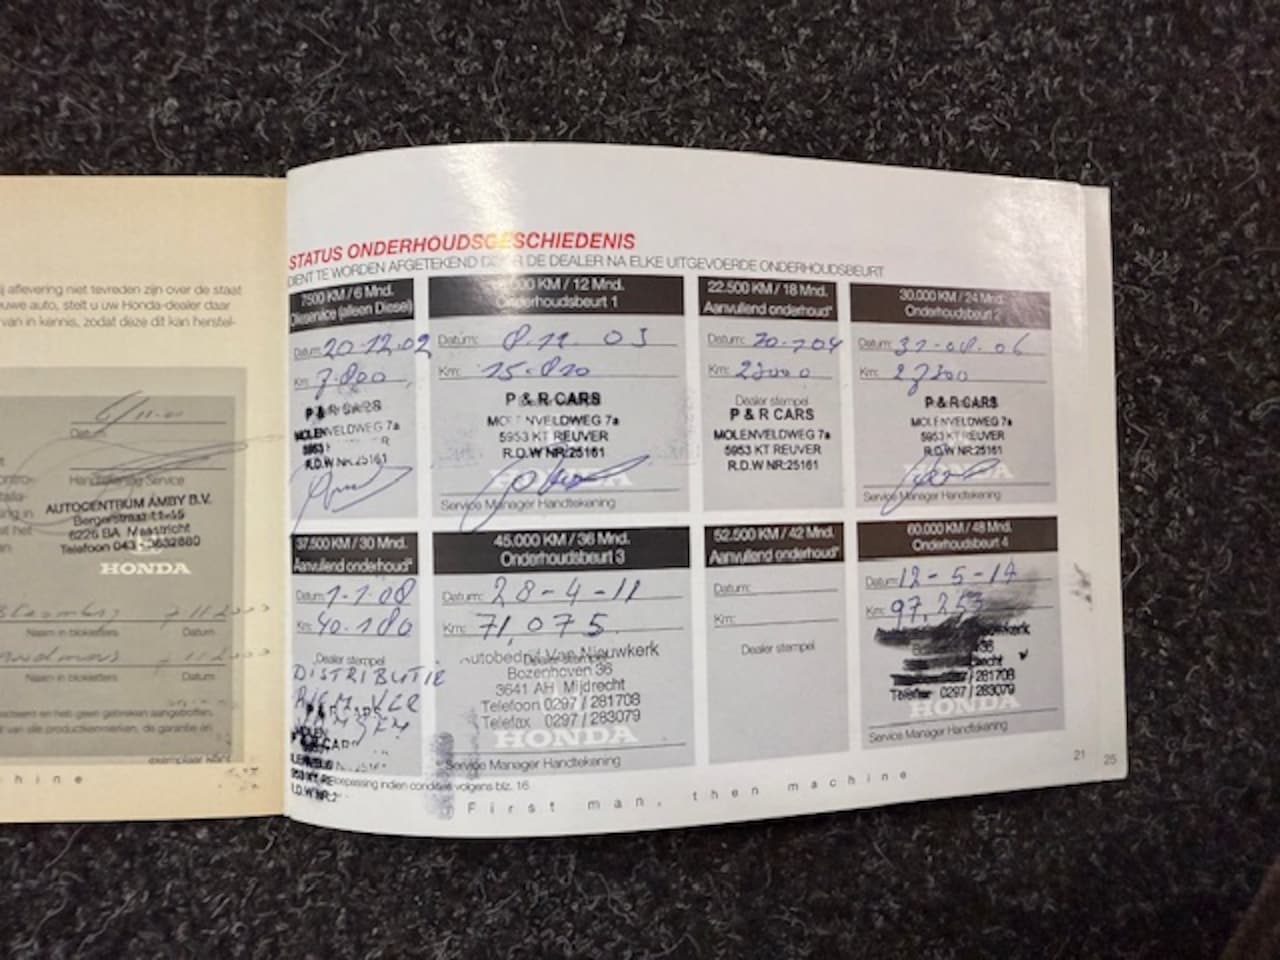 ij aflevering niet tevreden zijn over de staat
uwe auto, stelt u uw Honda-dealer daar
van in kennis, zodat deze dit kan herstel-
Handtekening Service
AUTOCENTRUM AMBY B.V.
Bergerstraat 11-15
6226 BA Maastricht
Telefoon
HONDA
Naam in blokletters Datum
Naam in blokletters Datum
hine
STATUS ONDERHOUDSGESCHIEDENIS
DIENT TE WORDEN AFGETEKEND DOOR DE DEALER NA ELKE UITGEVOERDE ONDERHOUDSBEURT
7500 KM / 6 Mnd.
Olieservice (alleen Diesel)
Datum: 20-12-02
Km: 7.800
P & R CARS
MOLENVELDWEG 7a
R.D.W NR:25161
KM / 12 Mnd.
Onderhoudsbeurt 1
Datum: 8.12. 03
Km: 15.810
P & R CARS
MOLENVELDWEG 7a
5953 KT REUVER
R.D.W NR:25161
HONDA
Service Manager Handtekening
22.500 KM / 18 Mnd.
Aanvullend onderhoud*
Datum:
Km: 23000
Dealer stempel
P & R CARS
MOLENVELDWEG 7a
5953 KT REUVER
R.D.W NR:25161
30.000 KM / 24 Mnd.
Onderhoudsbeurt 2
Datum: 31-08-06
Km: 27300
P & R CARS
MOLENVELDWEG 7a
5953 KT REUVER
R.D.W NR:25161
HONDA
Service Manager Handtekening
37.500 KM / 30 Mnd.
Aanvullend onderhoud*
Datum: 1-1-08
Km: 40.180
Dealer stempel
DISTRIBUTIE
45.000 KM / 36 Mnd.
Onderhoudsbeurt 3
Datum: 28-4-11
Km: 71,075
Dealer stempel
Autobedrijf Van Nieuwkerk
Bozenhoven 36
3641 AH Mijdrecht
Telefoon 0297 / 281708
Telefax 0297 / 283079
HONDA
Service Manager Handtekening
52.500 KM / 42 Mnd.
Aanvullend onderhoud*
Datum:
Km:
Dealer stempel
60.000 KM / 48 Mnd.
Onderhoudsbeurt 4
Datum: 12-5-14
Km: 97.253
/ 281708
Telefax 0297 / 283079
HONDA
Service Manager Handtekening
toepassing indien conditie volgens blz. 16
First man, then machine
21
25